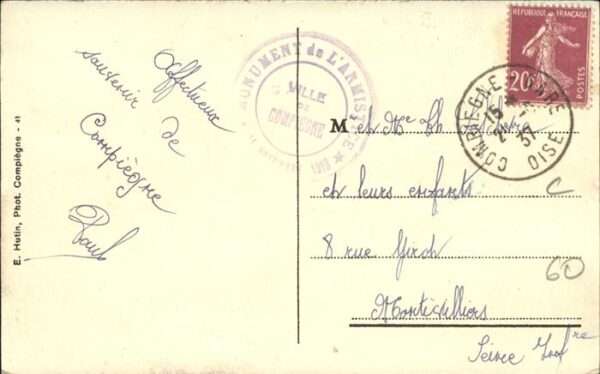 Affectueux
souvenir de
Compiègne
Paul
E. Hutin, Phot. Compiègne - 41
MONUMENT de L'ARMISTICE
VILLE
DE
COMPIEGNE
1918
RÉPUBLIQUE FRANÇAISE
20c
POSTES
COMPIEGNE GARE
OISE
15
37
M et Me Ch
et leurs enfants
8 rue
Montivilliers
Seine Infre
C
60